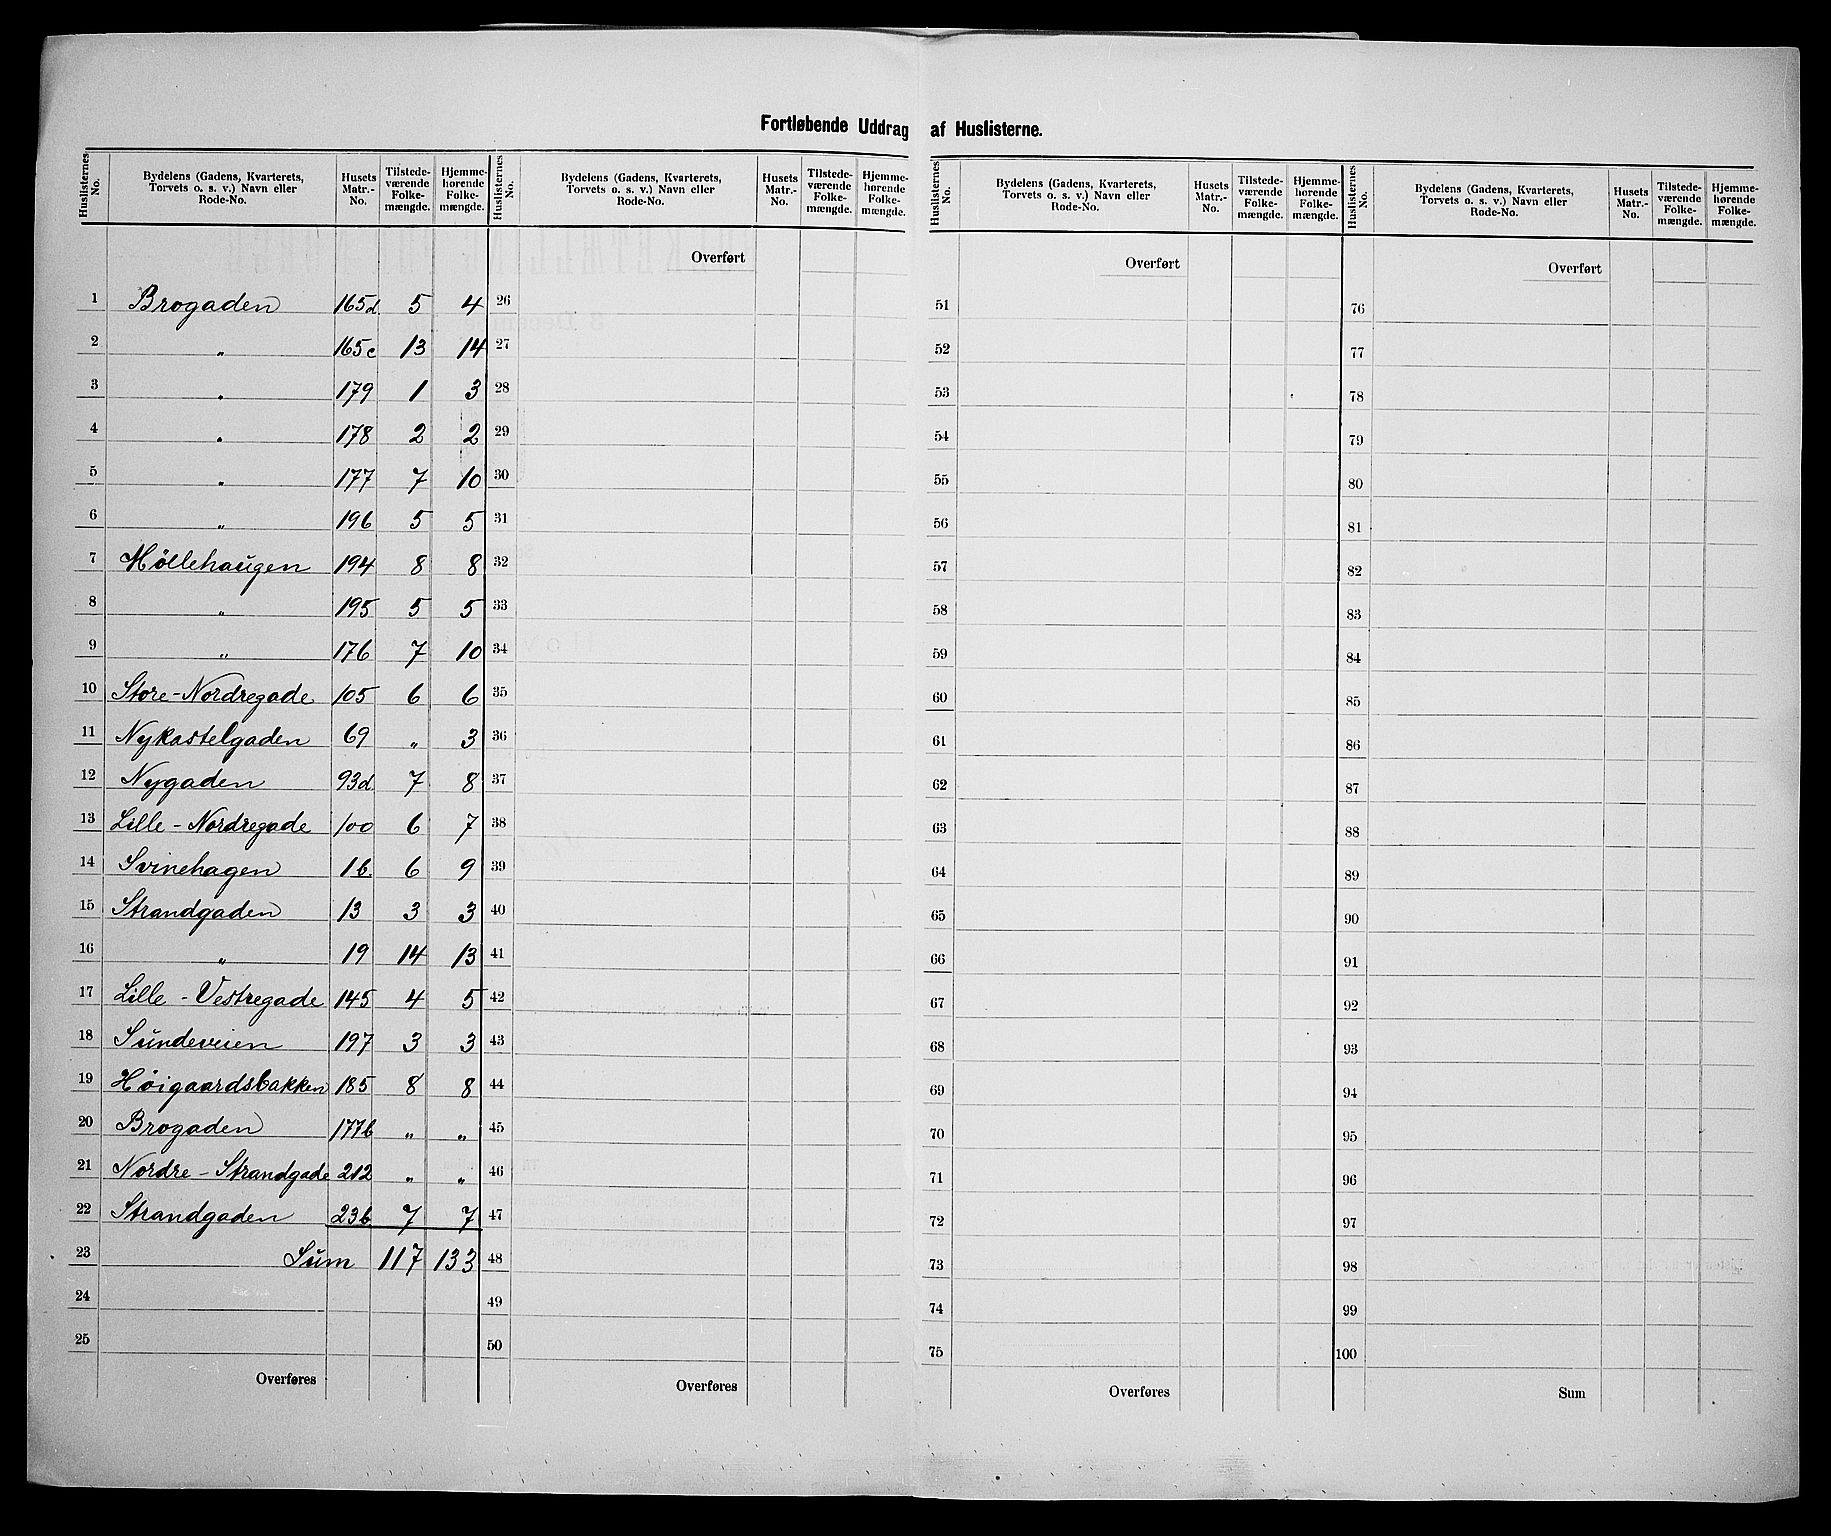 Fortløbende Uddrag af Huslisterne.
Huslisternes No. | Bydelens (Gadens, Kvarterets, Torvets o. s. v.) Navn eller Rode-No. | Husets Matr.-No. | Tilstedeværende Folkemængde. | Hjemmehørende Folkemængde.
Huslisternes No. | Bydelens (Gadens, Kvarterets, Torvets o. s. v.) Navn eller Rode-No. | Husets Matr.-No. | Tilstedeværende Folkemængde. | Hjemmehørende Folkemængde.
Huslisternes No. | Bydelens (Gadens, Kvarterets, Torvets o. s. v.) Navn eller Rode-No. | Husets Matr.-No. | Tilstedeværende Folkemængde. | Hjemmehørende Folkemængde.
Huslisternes No. | Bydelens (Gadens, Kvarterets, Torvets o. s. v.) Navn eller Rode-No. | Husets Matr.-No. | Tilstedeværende Folkemængde. | Hjemmehørende Folkemængde.
Overført Overført Overført
1 Brogaden 165d. 5 4 26 51 76
2 " 165c 13 14 27 52 77
3 " 179 1 3 28 53 78
4 " 178 2 2 29 54 79
5 " 177 7 10 30 55 80
6 " 196 5 5 31 56 81
7 Møllehaugen 194 8 8 32 57 82
8 " 195 5 5 33 58 83
9 " 176 7 10 34 59 84
10 Store-Nordregade 105 6 6 35 60 85
11 Nykastelgaden 69 " 3 36 61 86
12 Nygaden 93d. 7 8 37 62 87
13 Lille-Nordregade 100 6 7 38 63 88
14 Svinehagen 1b. 6 9 39 64 89
15 Strandgaden 13 3 3 40 65 90
16 " 19 14 13 41 66 91
17 Lille-Vestregade 145 4 5 42 67 92
18 Sundeveien 197 3 3 43 68 93
19 Høigaardsbakken 185 8 8 44 69 94
20 Brogaden 177b " " 45 70 95
21 Nordre-Strandgade 212 " " 46 71 96
22 Strandgaden 23b. 7 7 47 72 97
23 Sum 117 133 48 73 98
24 49 74 99
25 50 75 100
Overføres Overføres Overføres Sum